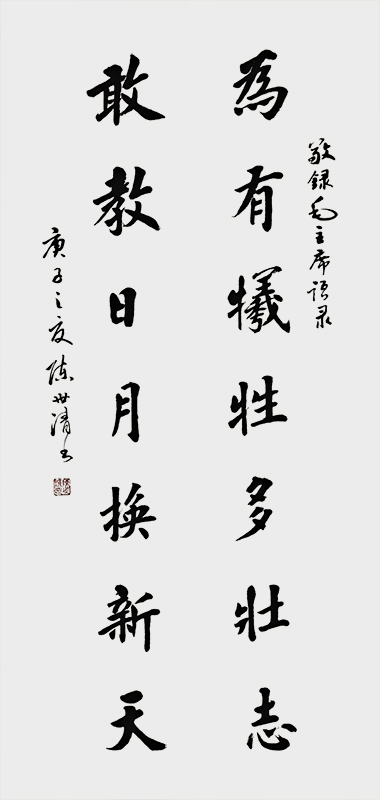 敬録毛主席语录
為有犧牲多壮志
敢教日月换新天
庚子之夏陈世清书